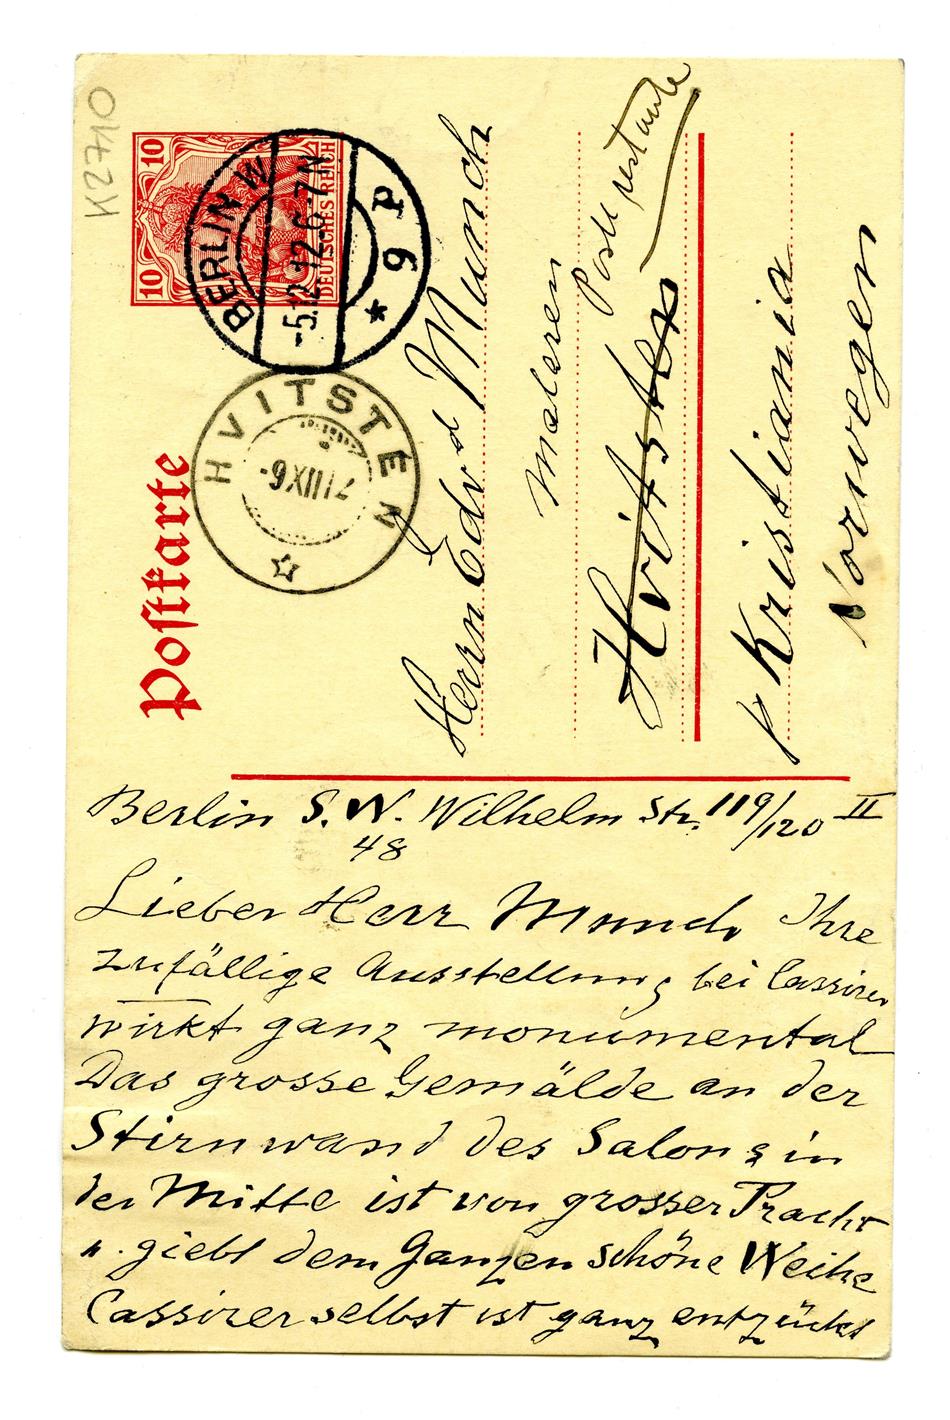 K2710
10
10
DEUTSCHES REICH
BERLIN W
-5.12.12.6-7N
* 9 P
HVITSTEN
7 XII
Postkarte
Herrn Edvd Munch
Maleren
Post restante
Hvitsten
pr Kristiania
Norwegen
Berlin S.W. Wilhelm Str. 119/120 II
48
Lieber Herr Munch Ihre
zufällige Ausstellung bei Cassirer
wirkt ganz monumental
Das grosse Gemälde an der
Stirnwand des Salons in
der Mitte ist von grosser Pracht
u. giebt dem Ganzen schöne Weihe
Cassirer selbst ist ganz entzückt